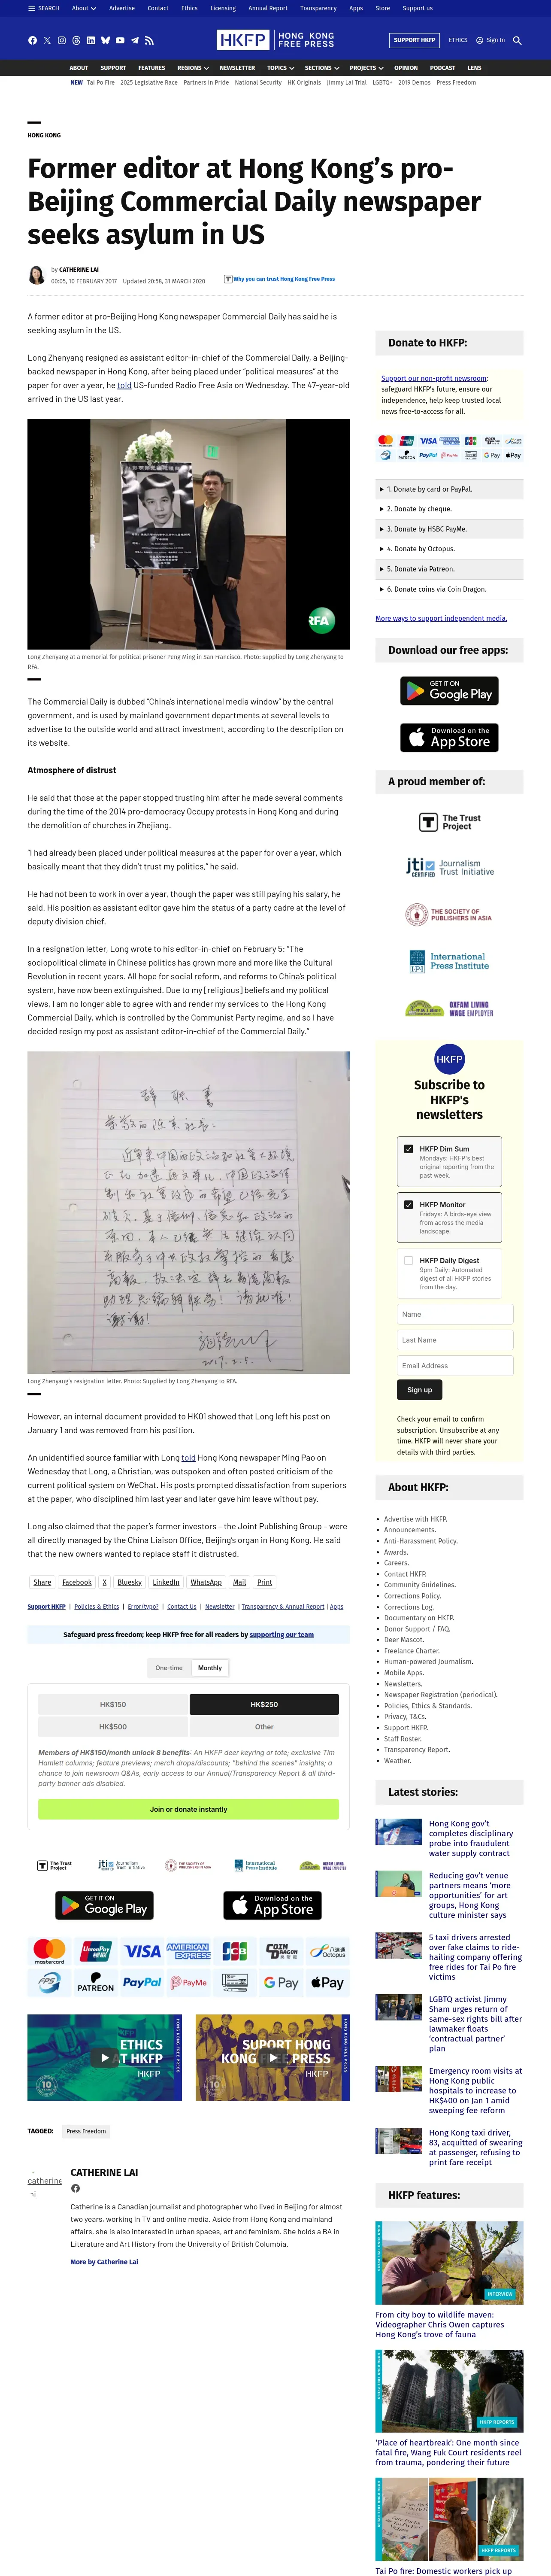 SEARCH
About
Advertise
Contact
Ethics
Licensing
Annual Report
Transparency
Apps
Store
Support us
HKFP
HONG KONG
FREE PRESS
SUPPORT HKFP
ETHICS
Sign In
ABOUT
SUPPORT
FEATURES
REGIONS
NEWSLETTER
TOPICS
SECTIONS
PROJECTS
OPINION
PODCAST
LENS
NEW
Tai Po Fire
2025 Legislative Race
Partners in Pride
National Security
HK Originals
Jimmy Lai Trial
LGBTQ+
2019 Demos
Press Freedom
HONG KONG
Former editor at Hong Kong’s pro-
Beijing Commercial Daily newspaper
seeks asylum in US
by CATHERINE LAI
00:05, 10 FEBRUARY 2017
Updated 20:58, 31 MARCH 2020
Why you can trust Hong Kong Free Press
A former editor at pro-Beijing Hong Kong newspaper Commercial Daily has said he is
seeking asylum in the US.
Long Zhenyang resigned as assistant editor-in-chief of the Commercial Daily, a Beijing-
backed newspaper in Hong Kong, after being placed under “political measures” at the
paper for over a year, he told US-funded Radio Free Asia on Wednesday. The 47-year-old
arrived in the US last year.
RFA
Long Zhenyang at a memorial for political prisoner Peng Ming in San Francisco. Photo: supplied by Long Zhenyang to
RFA.
The Commercial Daily is dubbed “China’s international media window” by the central
government, and is used by mainland departments at various levels to advertise and
understand the outside world and attract investment, according to the description on
its website.
Atmosphere of distrust
He said that those at the paper stopped trusting him after he made several comments
during the time of the 2014 pro-democracy Occupy protests in Hong Kong and during
the demolition of churches in Zhejiang.
“I had already been placed under political measures at the paper for over a year, which
basically meant that they didn’t trust my politics,” he said.
He had not been to work in over a year, though the paper was still paying his salary, he
said. His position as assistant editor gave him the status of a party cadre at the level of
deputy division chief.
In a resignation letter, Long wrote to his editor-in-chief on February 5: “The
sociopolitical climate in Chinese politics has grown more and more like the Cultural
Revolution in recent years. All hope for social reform, and reforms to China’s political
system, have now been extinguished. Due to my [religious] beliefs and my political
views, I am no longer able to agree with and render my services to the Hong Kong
Commercial Daily, which is controlled by the Communist Party regime, and so I have
decided resign my post as assistant editor-in-chief of the Commercial Daily.”
2017.2.5.
Long Zhenyang’s resignation letter. Photo: Supplied by Long Zhenyang to RFA.
However, an internal document provided to HK01 showed that Long left his post on
January 1 and was removed from his position.
An unidentified source familiar with Long told Hong Kong newspaper Ming Pao on
Wednesday that Long, a Christian, was outspoken and often posted criticism of the
current political system on WeChat. His posts prompted dissatisfaction from superiors
at the paper, who disciplined him last year and later gave him leave without pay.
Long also claimed that the paper’s former investors – the Joint Publishing Group – were
all directly under the China Liaison Office, Beijing’s organ in Hong Kong. He said that
he witnessed it become more and more distrusted.
Share
Facebook
X
Bluesky
LinkedIn
WhatsApp
Mail
Print
Support HKFP | Policies & Ethics | Error/typo? | Contact Us | Newsletter | Transparency & Annual Report | Apps
Safeguard press freedom; keep HKFP free for all readers by supporting our team
One-time
Monthly
HK$150
HK$250
HK$500
Other
Members of HK$150/month unlock 8 benefits: An HKFP deer keyring or tote; exclusive Tim
Hamlett columns; feature previews; merch drops/discounts; "behind the scenes" insights; a
chance to join newsroom Q&As, early access to our Annual/Transparency Report & all third-
party banner ads disabled.
Join or donate instantly
The Trust
Project
GET IT ON
Google Play
Download on the
App Store
mastercard
UnionPay
VISA
AMERICAN EXPRESS
JCB
COIN DRAGON
八達通
Octopus
FPS
PATREON
PayPal
PayMe
G Pay
Pay
ETHICS
AT HKFP
HKFP
SUPORT HONG
KONG FREE PRESS
HKFP
TAGGED:
Press Freedom
CATHERINE LAI
Catherine is a Canadian journalist and photographer who lived in Beijing for almost
two years, working in TV and online media. Aside from Hong Kong and mainland
affairs, she is also interested in urban spaces, art and feminism. She holds a BA in
Literature and Art History from the University of British Columbia.
More by Catherine Lai
Donate to HKFP:
Support our non-profit newsroom:
safeguard HKFP's future, ensure our
independence, help keep trusted local
news free-to-access for all.
1. Donate by card or PayPal.
2. Donate by cheque.
3. Donate by HSBC PayMe.
4. Donate by Octopus.
5. Donate via Patreon.
6. Donate coins via Coin Dragon.
More ways to support independent media.
Download our free apps:
GET IT ON
Google Play
Download on the
App Store
A proud member of:
The Trust
Project
jti
CERTIFIED
Journalism
Trust Initiative
THE SOCIETY OF
PUBLISHERS IN ASIA
IPI
International
Press Institute
OXFAM LIVING
WAGE EMPLOYER
HKFP
Subscribe to
HKFP's
newsletters
HKFP Dim Sum
Mondays: HKFP's best
original reporting from the
past week.
HKFP Monitor
Fridays: A birds-eye view
from across the media
landscape.
HKFP Daily Digest
9pm Daily: Automated
digest of all HKFP stories
from the day.
Name
Last Name
Email Address
Sign up
Check your email to confirm
subscription. Unsubscribe at any
time. HKFP will never share your
details with third parties.
About HKFP:
Advertise with HKFP.
Announcements.
Anti-Harassment Policy.
Awards.
Careers.
Contact HKFP.
Community Guidelines.
Corrections Policy.
Corrections Log.
Documentary on HKFP.
Donor Support / FAQ.
Deer Mascot.
Freelance Charter.
Human-powered Journalism.
Mobile Apps.
Newsletters.
Newspaper Registration (periodical).
Policies, Ethics & Standards.
Privacy, T&Cs.
Support HKFP.
Staff Roster.
Transparency Report.
Weather.
Latest stories:
Hong Kong gov’t
completes disciplinary
probe into fraudulent
water supply contract
Reducing gov’t venue
partners means ‘more
opportunities’ for art
groups, Hong Kong
culture minister says
5 taxi drivers arrested
over fake claims to ride-
hailing company offering
free rides for Tai Po fire
victims
LGBTQ activist Jimmy
Sham urges return of
same-sex rights bill after
lawmaker floats
‘contractual partner’
plan
Emergency room visits at
Hong Kong public
hospitals to increase to
HK$400 on Jan 1 amid
sweeping fee reform
Hong Kong taxi driver,
83, acquitted of swearing
at passenger, refusing to
print fare receipt
HKFP features:
INTERVIEW
From city boy to wildlife maven:
Videographer Chris Owen captures
Hong Kong’s trove of fauna
HKFP REPORTS
‘Place of heartbreak’: One month since
fatal fire, Wang Fuk Court residents reel
from trauma, pondering their future
HKFP REPORTS
Tai Po fire: Domestic workers pick up